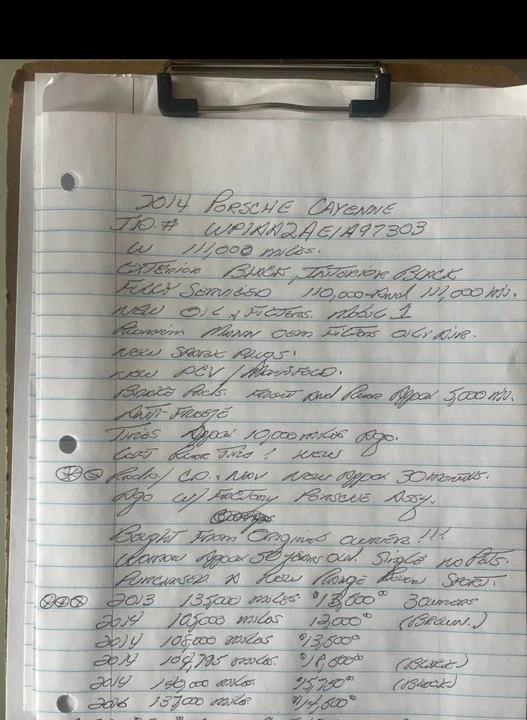 2014 PORSCHE CAYENNE
I.D.# WP1AA2AE1A97303
W 111,000 miles.
EXTERIOR BLACK, INTERIOR BLACK
FULLY SERVICED 110,000 And 111,000 mi.
NEW OIL & FILTERS. MOBIL 1
MANN OEM FILTERS OIL & AIR.
NEW SPARK PLUGS.
NEW PCV / MANIFOLD.
BRAKE PADS. FRONT And REAR Appox 5,000 mi.
ANTI-FREEZE
TIRES Appox 10,000 miles Ago.
LEFT REAR TIRE? NEW
RADIO/CD. & NAV NEW Appox 30 months.
Ago W/ FACTORY PORSCHE ASSY.
BOUGHT FROM ORIGINAL OWNERS!!!
WOMAN Appox 50 YEARS OLD. SINGLE NO PETS.
PURCHASED A NEW RANGE ROVER SPORT.
2013 135,000 miles $13,500 3 OWNERS
2014 105,000 miles 12,000 (BROWN.)
2014 108,000 miles $13,500
2014 109,795 miles $18,500 (BLACK)
2014 miles $15,750 (BLACK)
2016 137,000 miles $14,500